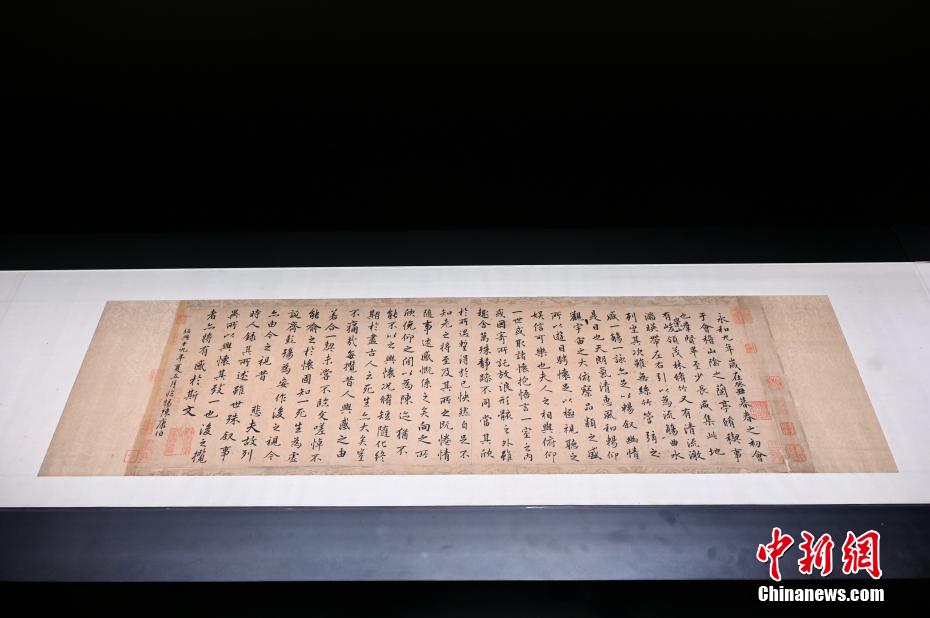 永和九年歲在癸丑暮春之初會
于會稽山陰之蘭亭脩稧事
也羣賢畢至少長咸集此地
有崇山峻領茂林脩竹又有清流激
湍暎帶左右引以為流觴曲水
列坐其次雖無絲竹管弦之
盛一觴一詠亦足以暢叙幽情
是日也天朗氣清惠風和暢仰
觀宇宙之大俯察品類之盛
所以遊目騁懷足以極視聽之
娛信可樂也夫人之相與俯仰
一世或取諸懷抱悟言一室之內
或因寄所託放浪形骸之外雖
趣舍萬殊靜躁不同當其欣
於所遇暫得於己怏然自足不
知老之將至及其所之既惓情
隨事遷感慨係之矣向之所
欣俛仰之間以為陳迹猶不
能不以之興懷況脩短隨化終
期於盡古人云死生亦大矣豈
不痛哉每攬昔人興感之由
若合一契未嘗不臨文嗟悼不
能喻之於懷固知一死生為虛
誕齊彭殤為妄作後之視今
亦由今之視昔悲夫故列
時人錄其所述雖世殊叙事
異所以興懷其致一也後之攬
者亦將有感於斯文
紹興十九年夏五月臨賜陳康伯
中新網
Chinanews.com